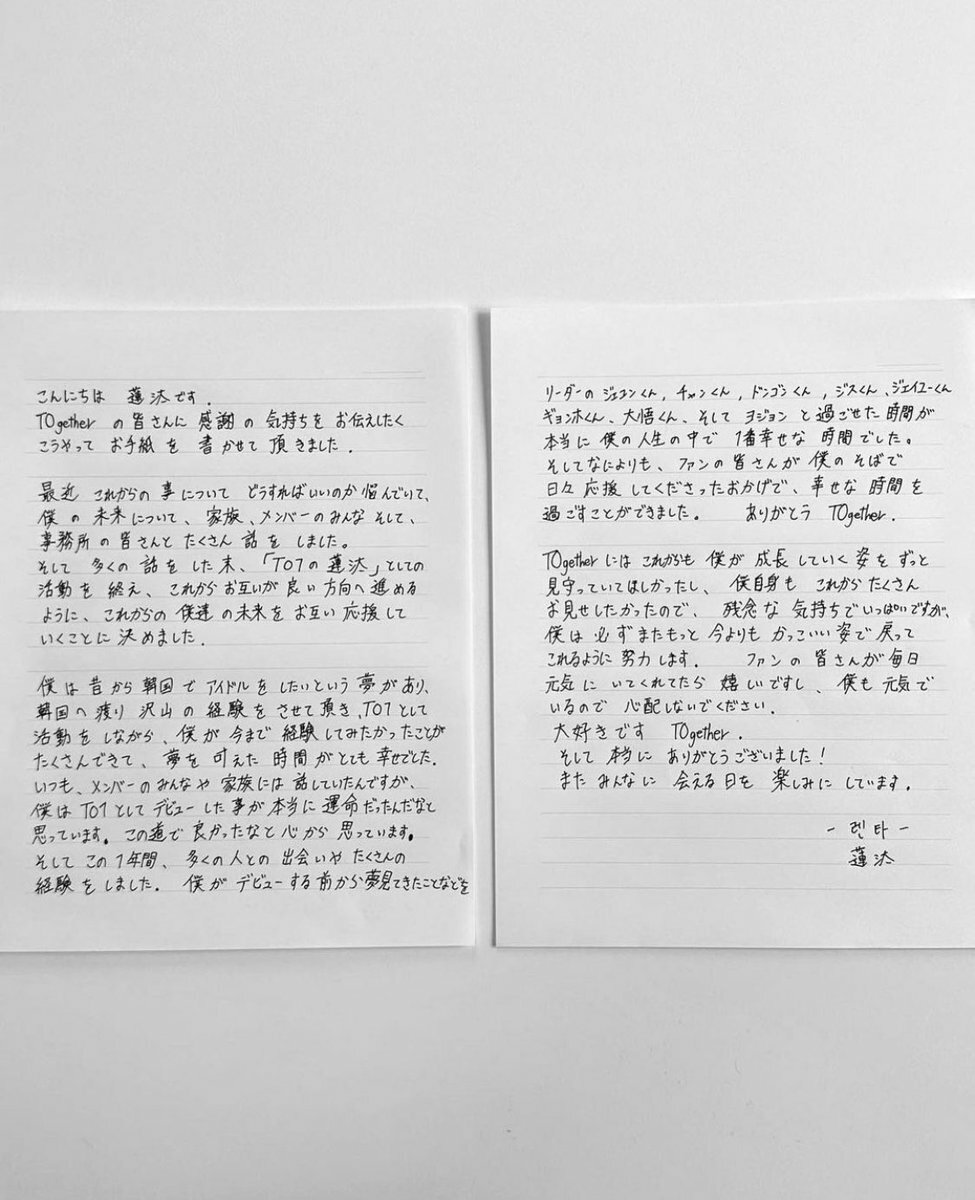 こんにちは 蓮汰です.
TOgether の皆さんに 感謝 の 気持ちを お伝えしたく
こうやって お手紙 を 書かせて 頂きました.
最近 これからの 事について どうすればいいのか 悩んでいて、
僕 の 未来について、 家族、メンバーのみんな そして、
事務所の皆さんと たくさん 話を しました。
そして 多くの 話を した末、「TO1の 蓮汰」としての
活動を 終え、これから お互いが 良い 方向へ 進める
ように、これからの 僕達 の未来を お互い 応援して
いくことに 決めました.
僕は 昔から 韓国で アイドルを したいという 夢があり、
韓国へ 渡り 沢山の 経験を させて 頂き、TO1として
活動を しながら、僕が 今まで 経験してみたかったことが
たくさんできて、夢を 叶えた 時間がとても 幸せでした。
いつも、メンバーのみんなや 家族には 話していたんですが、
僕は TO1として デビューした事が 本当に 運命だったんだなと
思っています。この道で 良かったなと 心から 思っています。
そして この 1年間、多くの人との 出会いや たくさんの
経験をしました。 僕が デビューする前から夢見てきたことなどを
リーダーの ジェユンくん, チャンくん, ドンゴンくん, ジスくん、ジェイユーくん
ギョンホくん、大悟くん、そして ヨジョン と 過ごせた 時間が
本当に 僕の人生の中で 1番幸せな 時間でした。
そしてなによりも、ファンの皆さんが 僕のそばで
日々 応援してくださったおかげで、幸せな 時間を
過ごすことができました。 ありがとう TOgether.
TOgetherには これからも 僕が 成長していく姿を ずっと
見守っていてほしかったし、僕自身も これからたくさん
お見せしたかったので、残念な 気持ちでいっぱいですが、
僕は 必ず またもっと 今よりも かっこいい姿で 戻って
これるように 努力します. ファンの 皆さんが 毎日
元気に いてくれてたら 嬉しいですし、僕も 元気で
いるので 心配しないでください.
大好きです TOgether.
そして 本当に ありがとうございました!
また みんなに 会える日を 楽しみに しています.
- 렌타 -
蓮汰